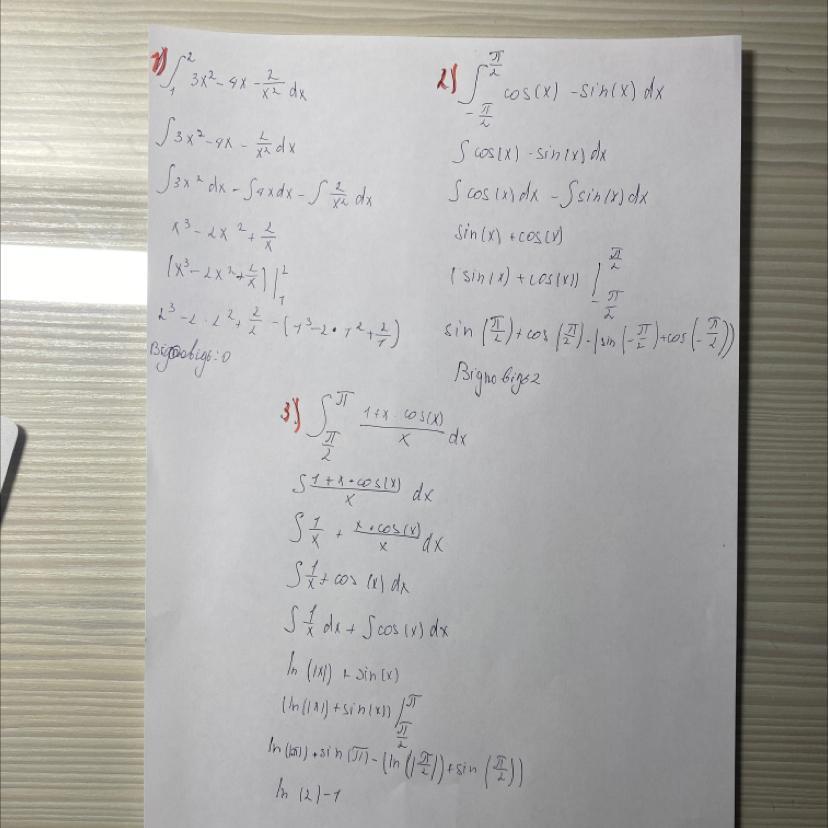 1) ∫₁² 3x² - 4x - 2/x² dx
∫3x² - 4x - 2/x² dx
∫3x² dx - ∫4x dx - ∫ 2/x² dx
x³ - 2x² + 2/x
(x³ - 2x² + 2/x) |₁²
2³ - 2 · 2² + 2/2 - (1³ - 2 · 1² + 2/1)
Відповідь: 0
2) ∫_{-π/2}^{π/2} cos(x) - sin(x) dx
∫ cos(x) - sin(x) dx
∫ cos(x) dx - ∫ sin(x) dx
sin(x) + cos(x)
(sin(x) + cos(x)) |_{-π/2}^{π/2}
sin(π/2) + cos(π/2) - (sin(-π/2) + cos(-π/2))
Відповідь 2
3) ∫_{π/2}^{π} (1 + x · cos(x))/x dx
∫ (1 + x · cos(x))/x dx
∫ 1/x + (x · cos(x))/x dx
∫ 1/x + cos(x) dx
∫ 1/x dx + ∫ cos(x) dx
ln(|x|) + sin(x)
(ln(|x|) + sin(x)) |_{π/2}^{π}
ln(|π|) + sin(π) - (ln(|π/2|) + sin(π/2))
ln(2) - 1